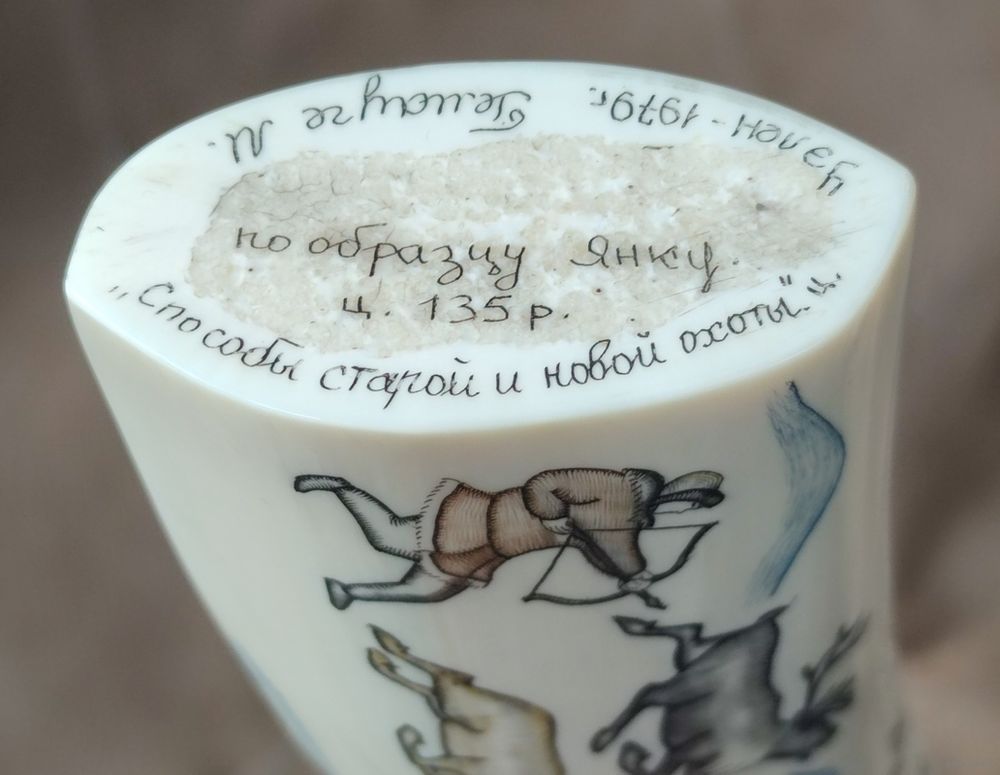 Уэлен - 1979г. Гемауге М.
по образцу Янку.
ц. 135 р.
„Способы старой и новой охоты." ц.